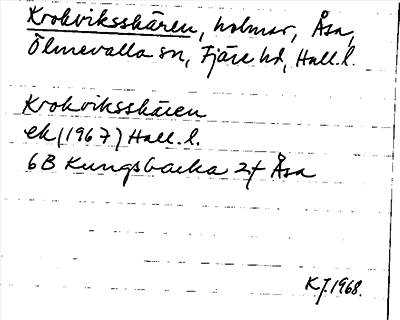 Krokviksskären, holmar, Åsa,
Ölmevalla sn, Fjäre hd, Hall. l.
Krokviksskären
ek (1967) Hall. l.
6B Kungsbacka 2f Åsa
K.J. 1968.